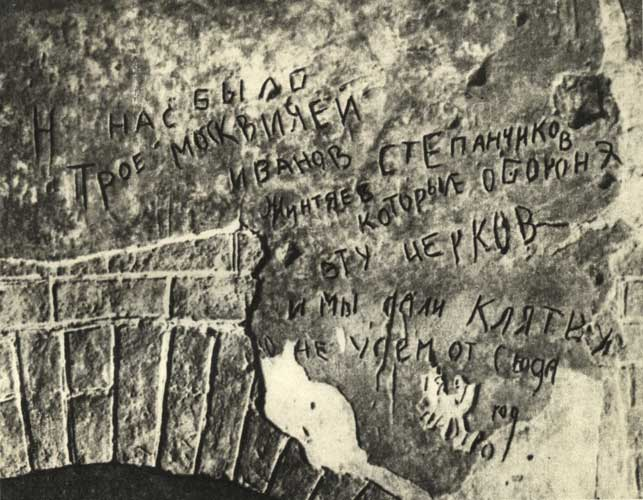 НАС БЫЛО
ТРОЕ МОСКВИЧЕЙ
ИВАНОВ СТЕПАНЧИКОВ
ЖУНТЯЕВ КОТОРЫЕ ОБОРОНЯ
ЭТУ ЦЕРКОВ
И МЫ ДАЛИ КЛЯТВУ
НЕ УЙДЕМ ОТ СЮДА
год